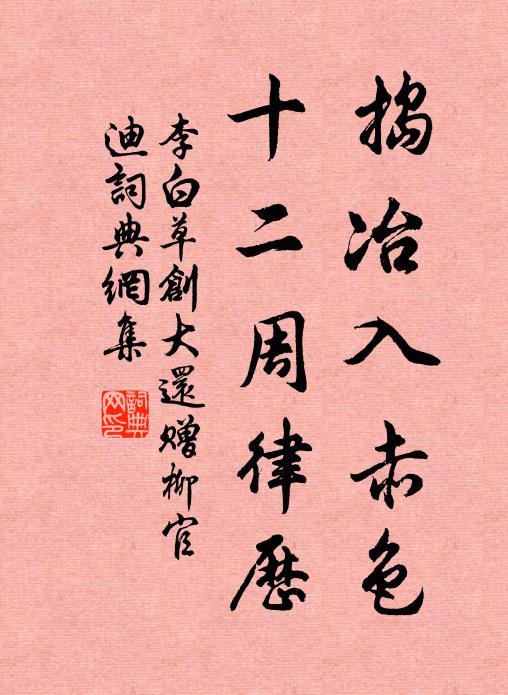 搗冶入赤色
十二周律歷
李白草創大還贈柳官
迪詞典網集
詞典网印